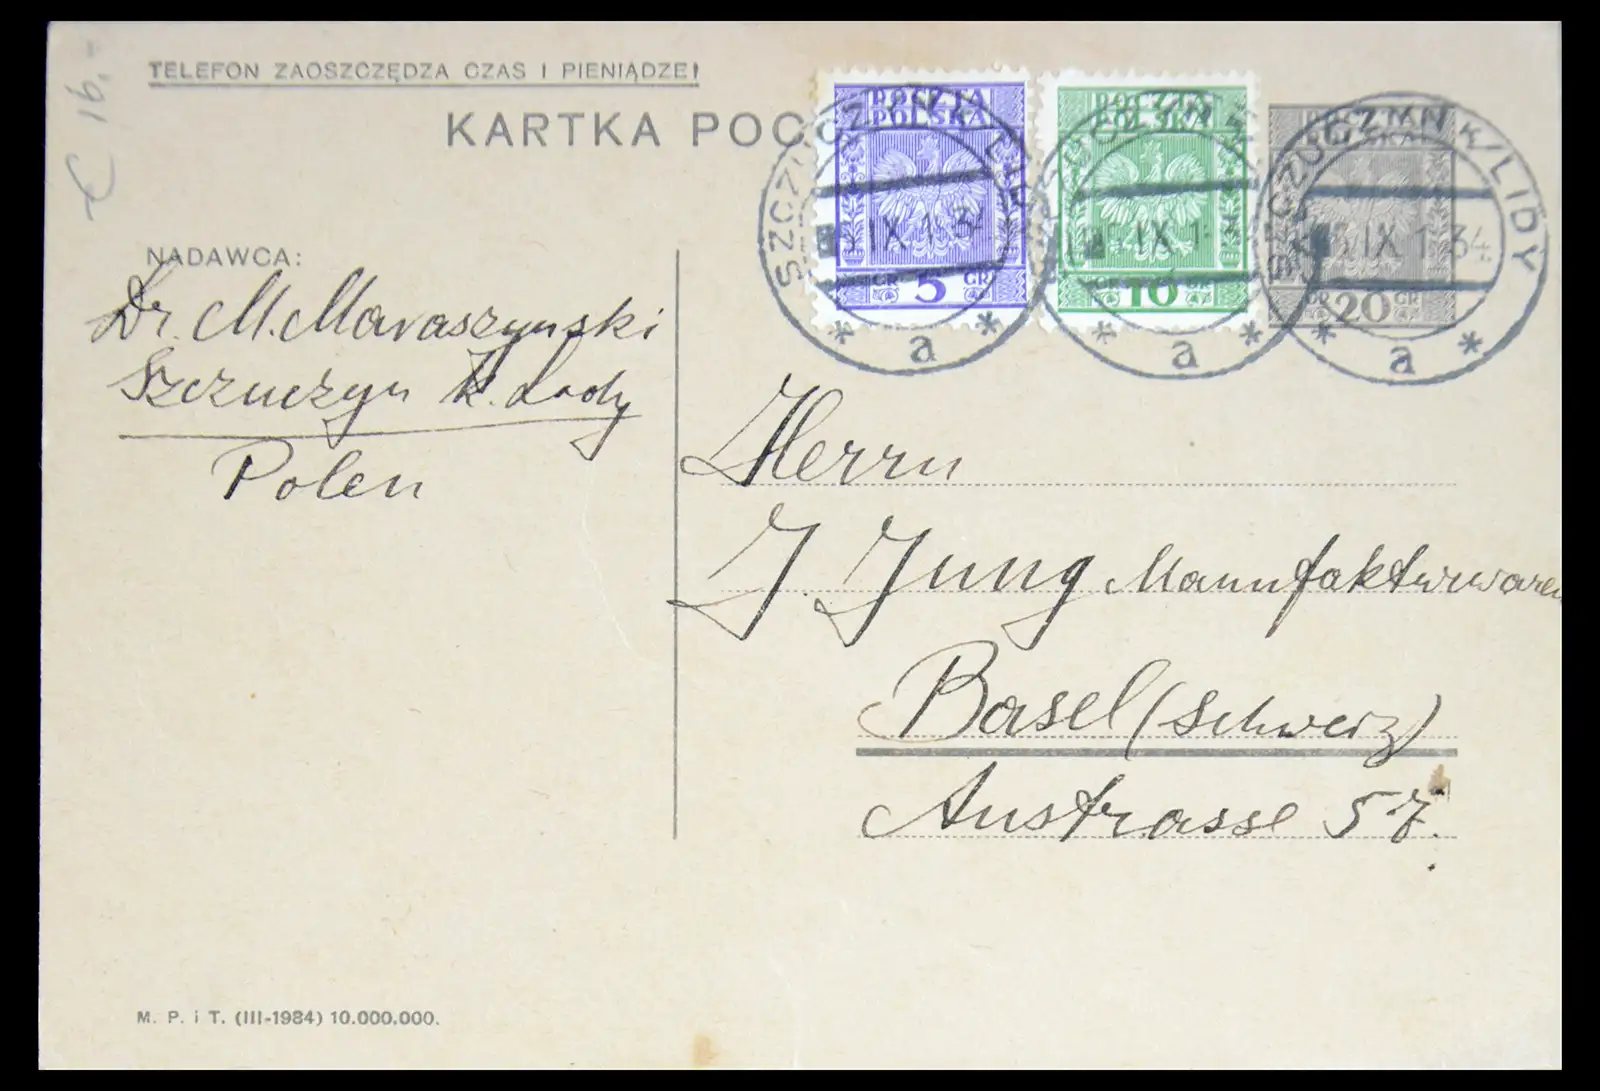 € 16,-
TELEFON ZAOSZCZĘDZA CZAS I PIENIĄDZE!
KARTKA POC
POCZTA
POLSKA
GR 5 GR
POCZTA
POLSKA
GR 10 GR
GR 20 GR
SZCZUCZYN K/LIDY
IX 1 34
a
SZCZUCZYN K/LIDY
IX 1
a
SZCZUCZYN K/LIDY
IX 1 34
a
NADAWCA:
Dr. M. Maraszynski
Szczuczyn k. Lady
Polen
Herrn
J. Jung Manufakturwaren
Basel (Schweiz)
Austrasse 57.
M. P. i T. (III-1934) 10.000.000.